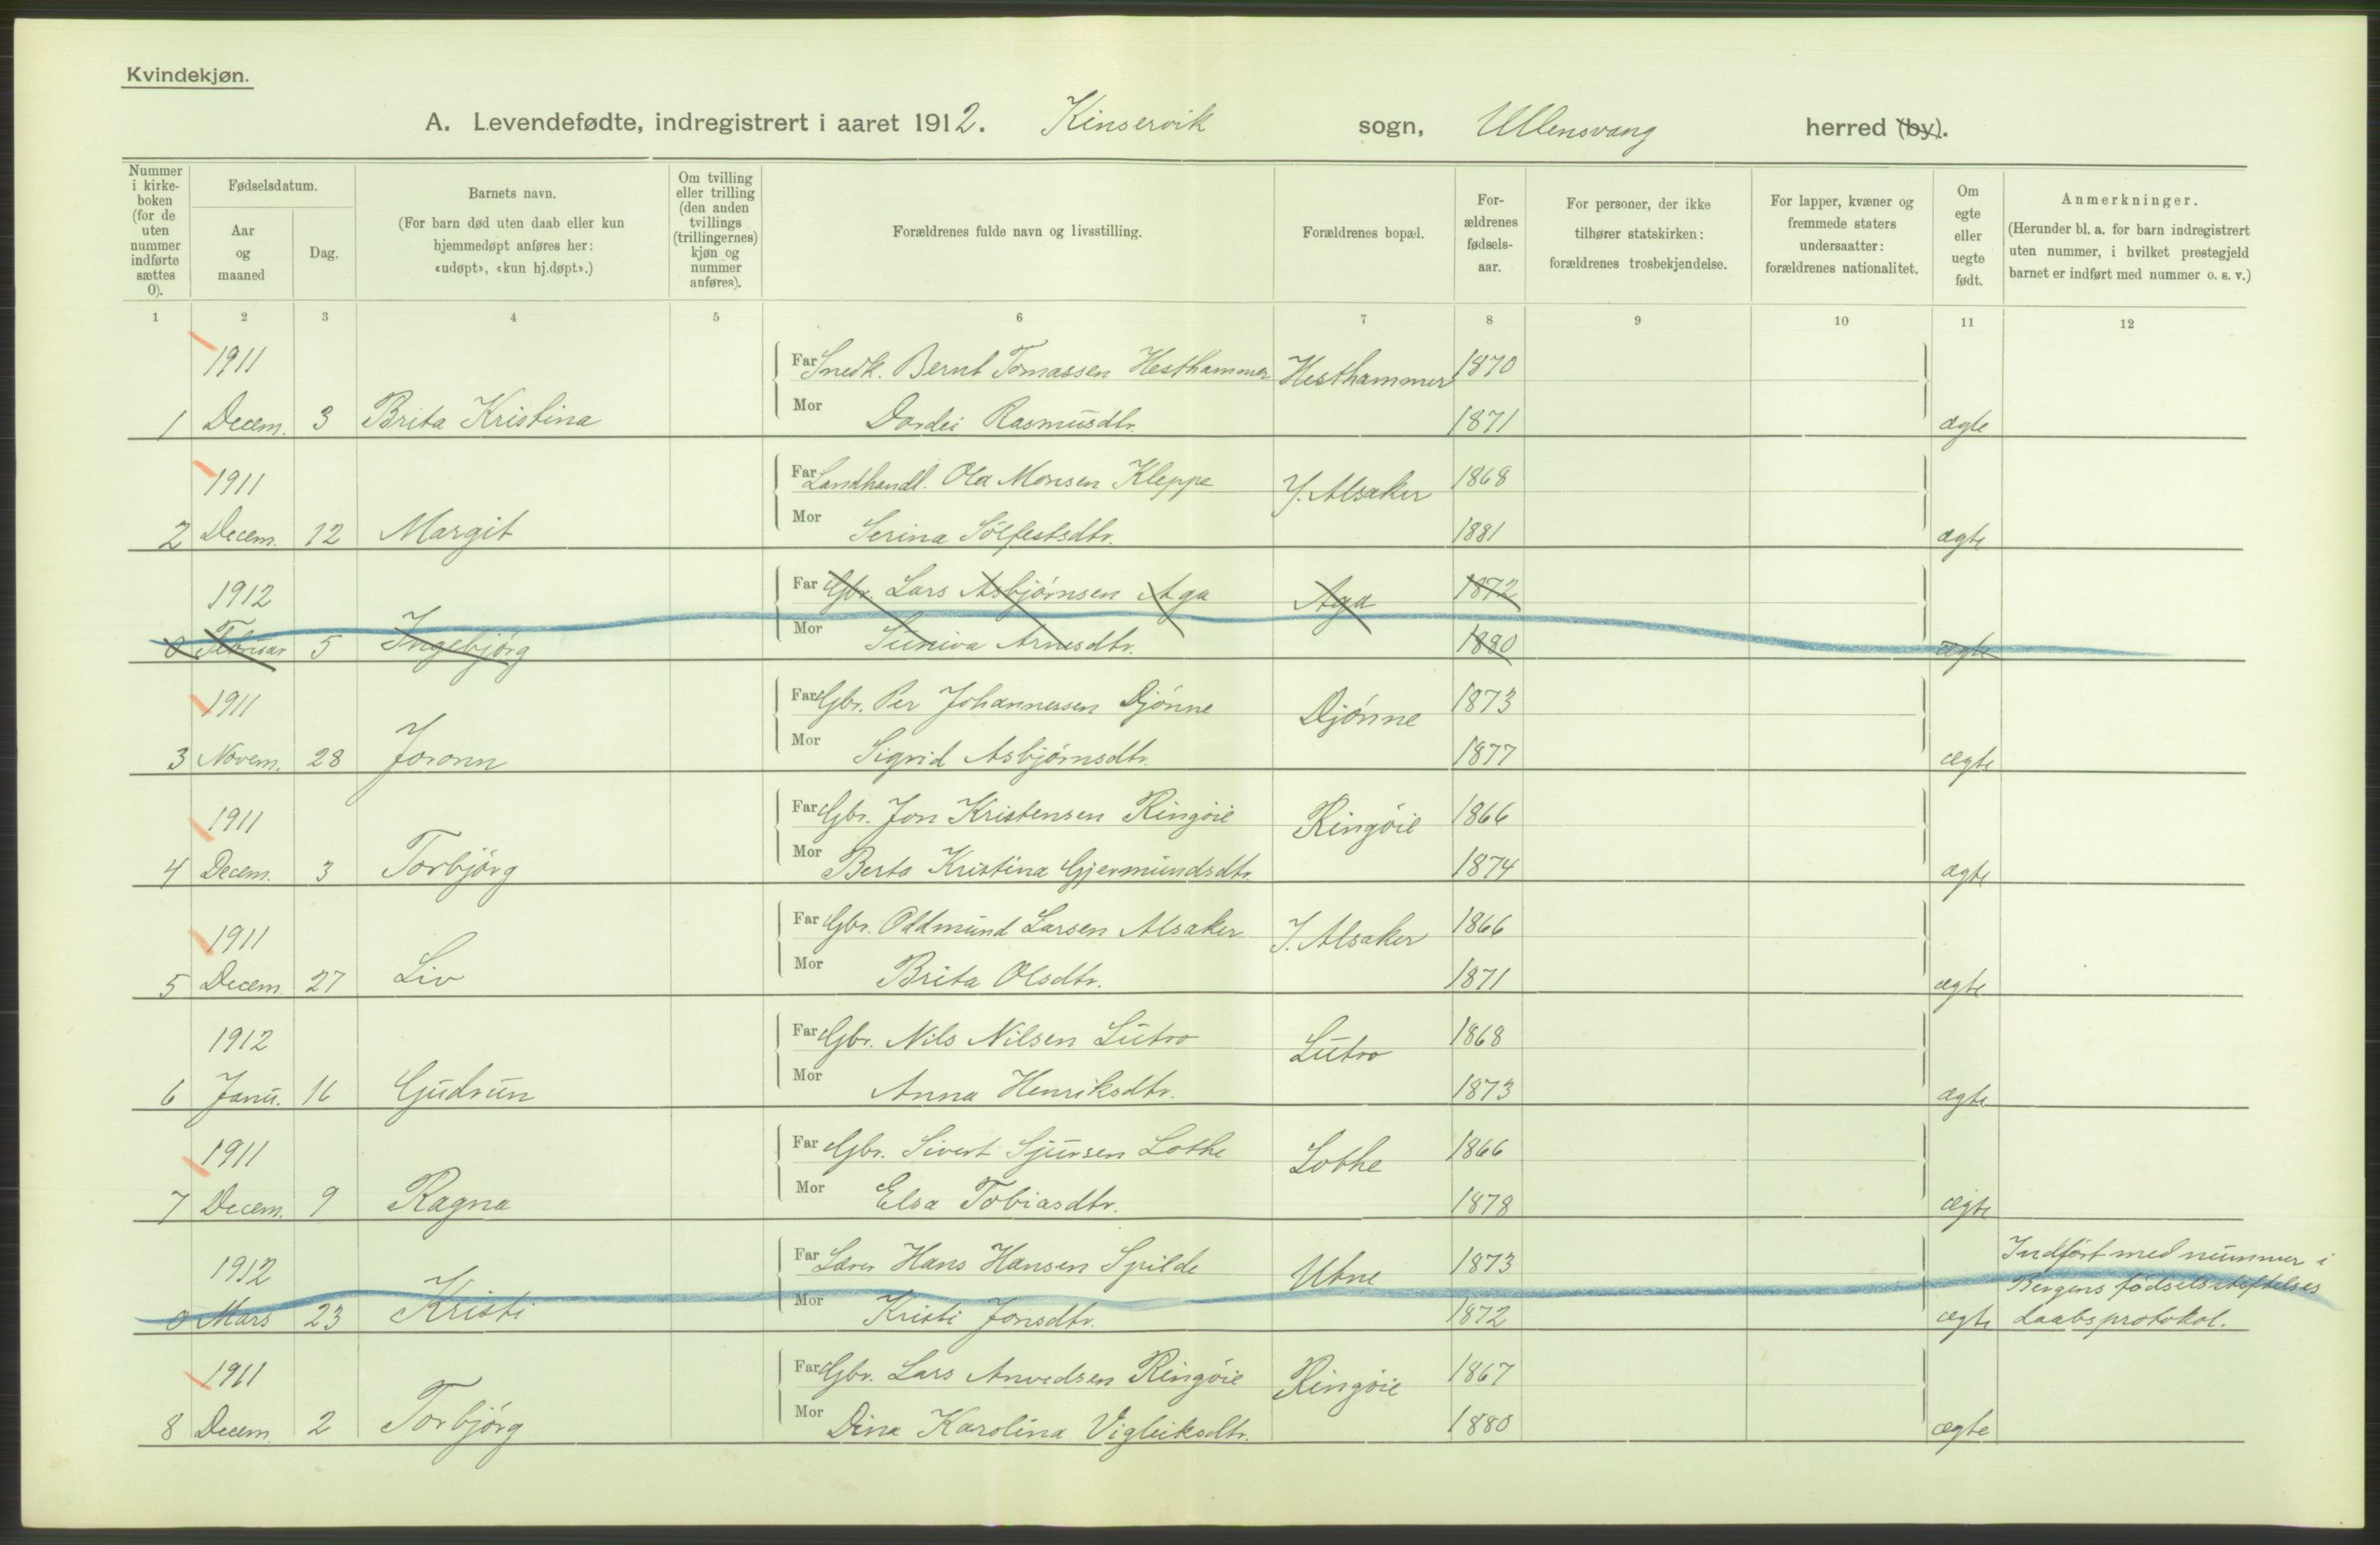 Kvindekjøn.
A. Levendefødte, indregistrert i aaret 1912. Kinservik sogn, Ullensvang herred (by).
Nummer i kirke-boken (for de uten nummer indførte sættes 0).
Fødselsdatum.
Aar og maaned
Dag.
Barnets navn.
(For barn død uten daab eller kun hjemmedøpt anføres her: «udøpt», «kun hj.døpt».)
Om tvilling eller trilling (den anden tvillings (trillingernes) kjøn og nummer anføres).
Forældrenes fulde navn og livsstilling.
Forældrenes bopæl.
For-ældrenes fødsels-aar.
For personer, der ikke tilhører statskirken: forældrenes trosbekjendelse.
For lapper, kvæner og fremmede staters undersaatter: forældrenes nationalitet.
Om egte eller uegte født.
Anmerkninger.
(Herunder bl. a. for barn indregistrert uten nummer, i hvilket prestegjeld barnet er indført med nummer o. s. v.)
1 2 3 4 5 6 7 8 9 10 11 12
1911 Far Snedk. Bernt Tomassen Hesthammer Hesthammer 1870
1 Decem. 3 Brita Kristina Mor Dordei Rasmusdtr. 1871 ægte
1911 Far Landhandl. Ola Monsen Kleppe Y. Alsaker 1868
2 Decem. 12 Margit Mor Serina Solfestsdtr. 1881 ægte
1912 Far Gbr. Lars Asbjørnsen Aga Aga 1872
0 Februar 5 Ingebjørg Mor Suniva Arnesdtr. 1880 ægte
1911 Far Gbr. Per Johannessen Djønne Djønne 1873
3 Novem. 28 Joronn Mor Sigrid Asbjørnsdtr. 1877 ægte
1911 Far Gbr. Jon Kristensen Ringøie Ringøie 1866
4 Decem. 3 Torbjørg Mor Berta Kristina Gjermundsdtr. 1874 ægte
1911 Far Gbr. Oddmund Larsen Alsaker I. Alsaker 1866
5 Decem. 27 Liv Mor Brita Olsdtr. 1871 ægte
1912 Far Gbr. Nils Nilsen Lutro Lutro 1868
6 Janu. 16 Gudrun Mor Anna Henriksdtr. 1873 ægte
1911 Far Gbr. Sivert Sjursen Lothe Lothe 1866
7 Decem. 9 Ragna Mor Elsa Tobiasdtr. 1878 ægte
1912 Far Lærer Hans Hansen Spilde Utne 1873 Indført med nummer i
0 Mars 23 Kristi Mor Kristi Jonsdtr. 1872 ægte Bergens fødselsstiftelses
daabsprotokol.
1911 Far Gbr. Lars Anvedsen Ringøie Ringøie 1867
8 Decem. 2 Torbjørg Mor Dina Karolina Vigleiksdtr. 1880 ægte